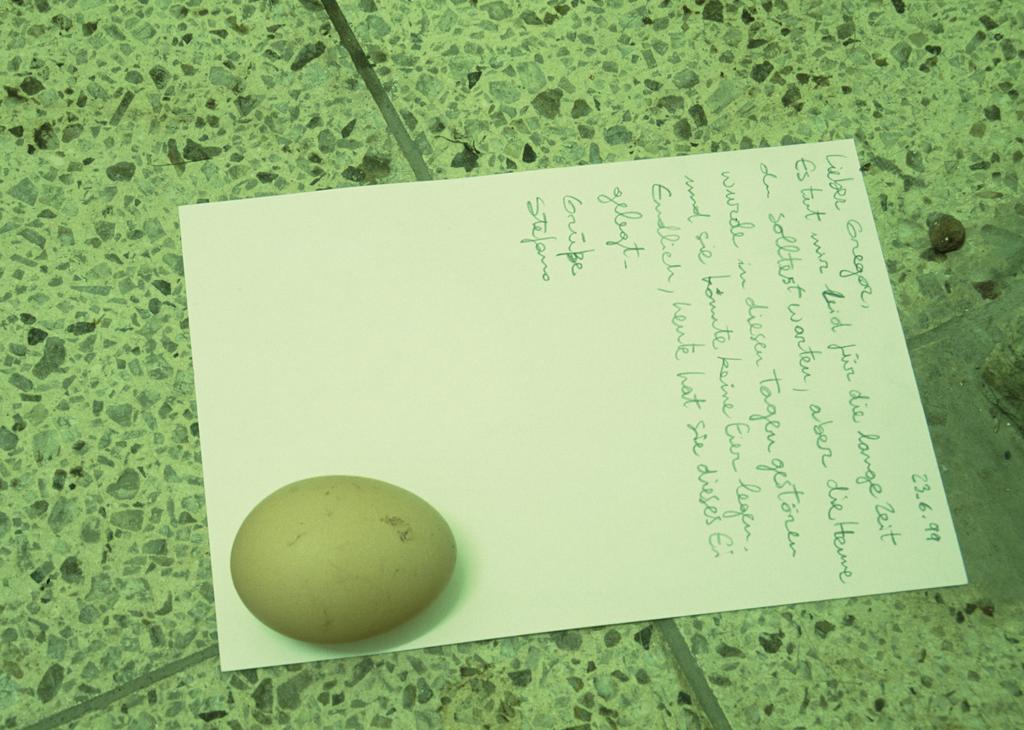 23.6.99
Lieber Gregor,
Es tut mir leid für die lange Zeit
du solltest warten, aber die Henne
wurde in diesen Tagen gestören
und sie könnte keine Eier legen.
Endlich, heute hat sie dieses Ei
gelegt-
Grüße
Stefano